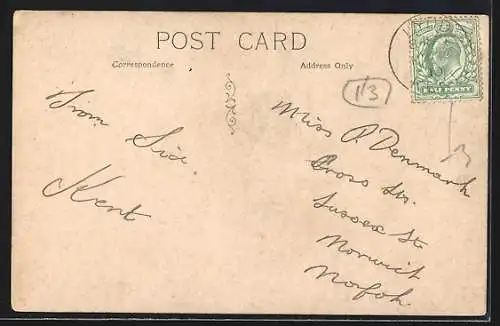 POST CARD
Correspondence
Address Only
1/3
From
Kent
Miss P. Denmark
Cross
Sussex St.
Norwich
Norfok
HALF PENNY